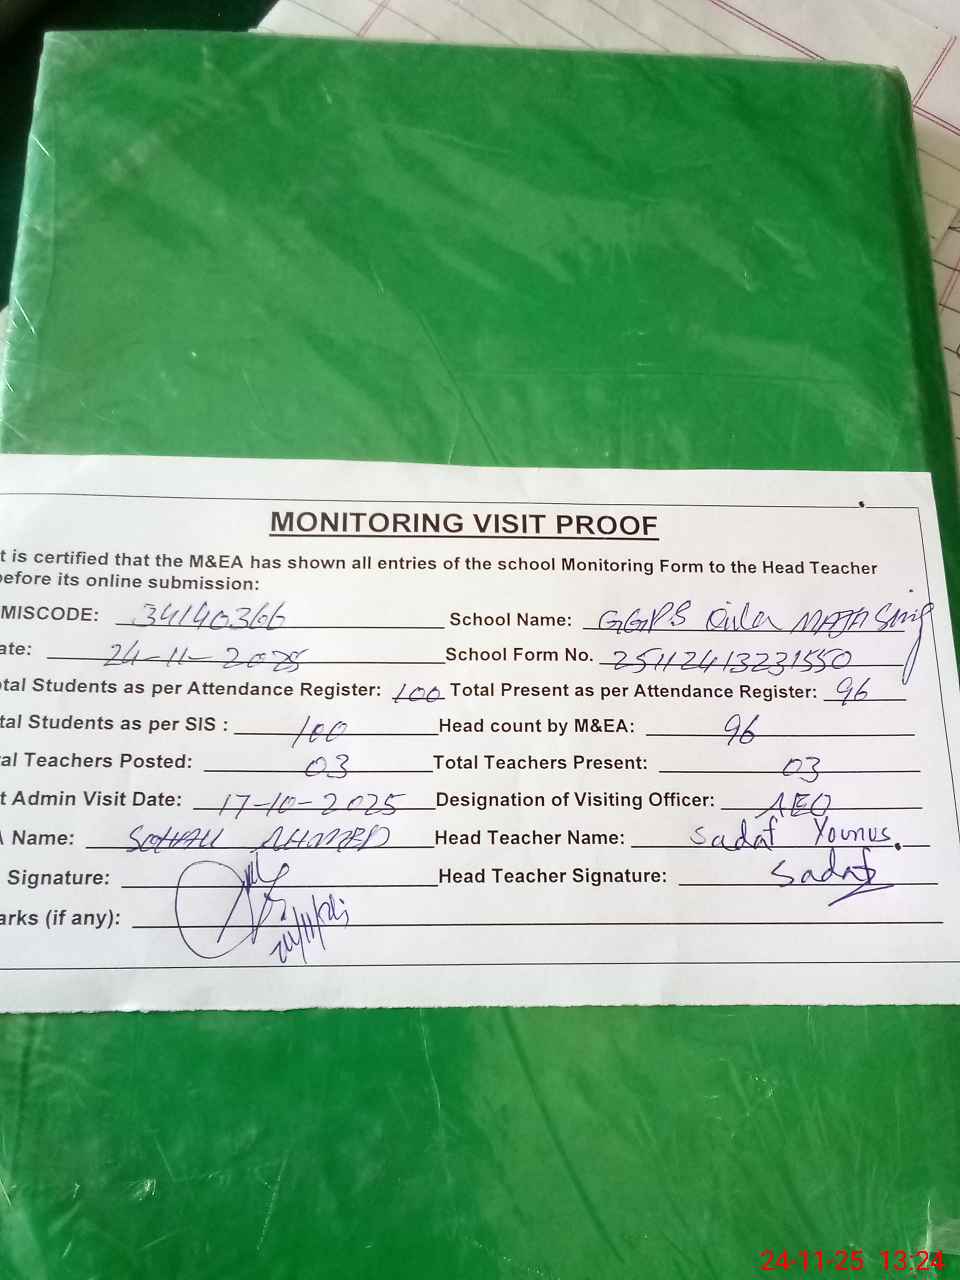 MONITORING VISIT PROOF
t is certified that the M&EA has shown all entries of the school Monitoring Form to the Head Teacher
before its online submission:
MISCODE: 34140366 School Name: GGPS Qila MAJA Sing
ate: 24-11-2025 School Form No. 25112413231550
otal Students as per Attendance Register: 100 Total Present as per Attendance Register: 96
tal Students as per SIS : 100 Head count by M&EA: 96
al Teachers Posted: 03 Total Teachers Present: 03
t Admin Visit Date: 17-10-2025 Designation of Visiting Officer: AEO
A Name: SOHAIL AHMED Head Teacher Name: Sadaf Younus.
Signature: Head Teacher Signature: Sadaf
arks (if any): 24/11/025
24-11-25 13:24